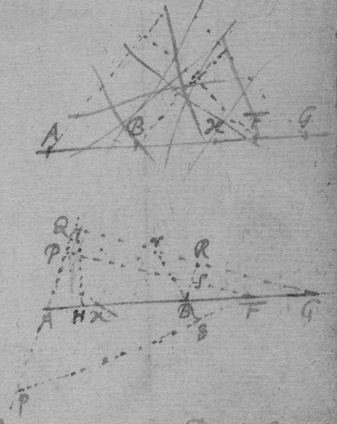 A B x F G
Q
P r R
S
A H x B F G
g
P